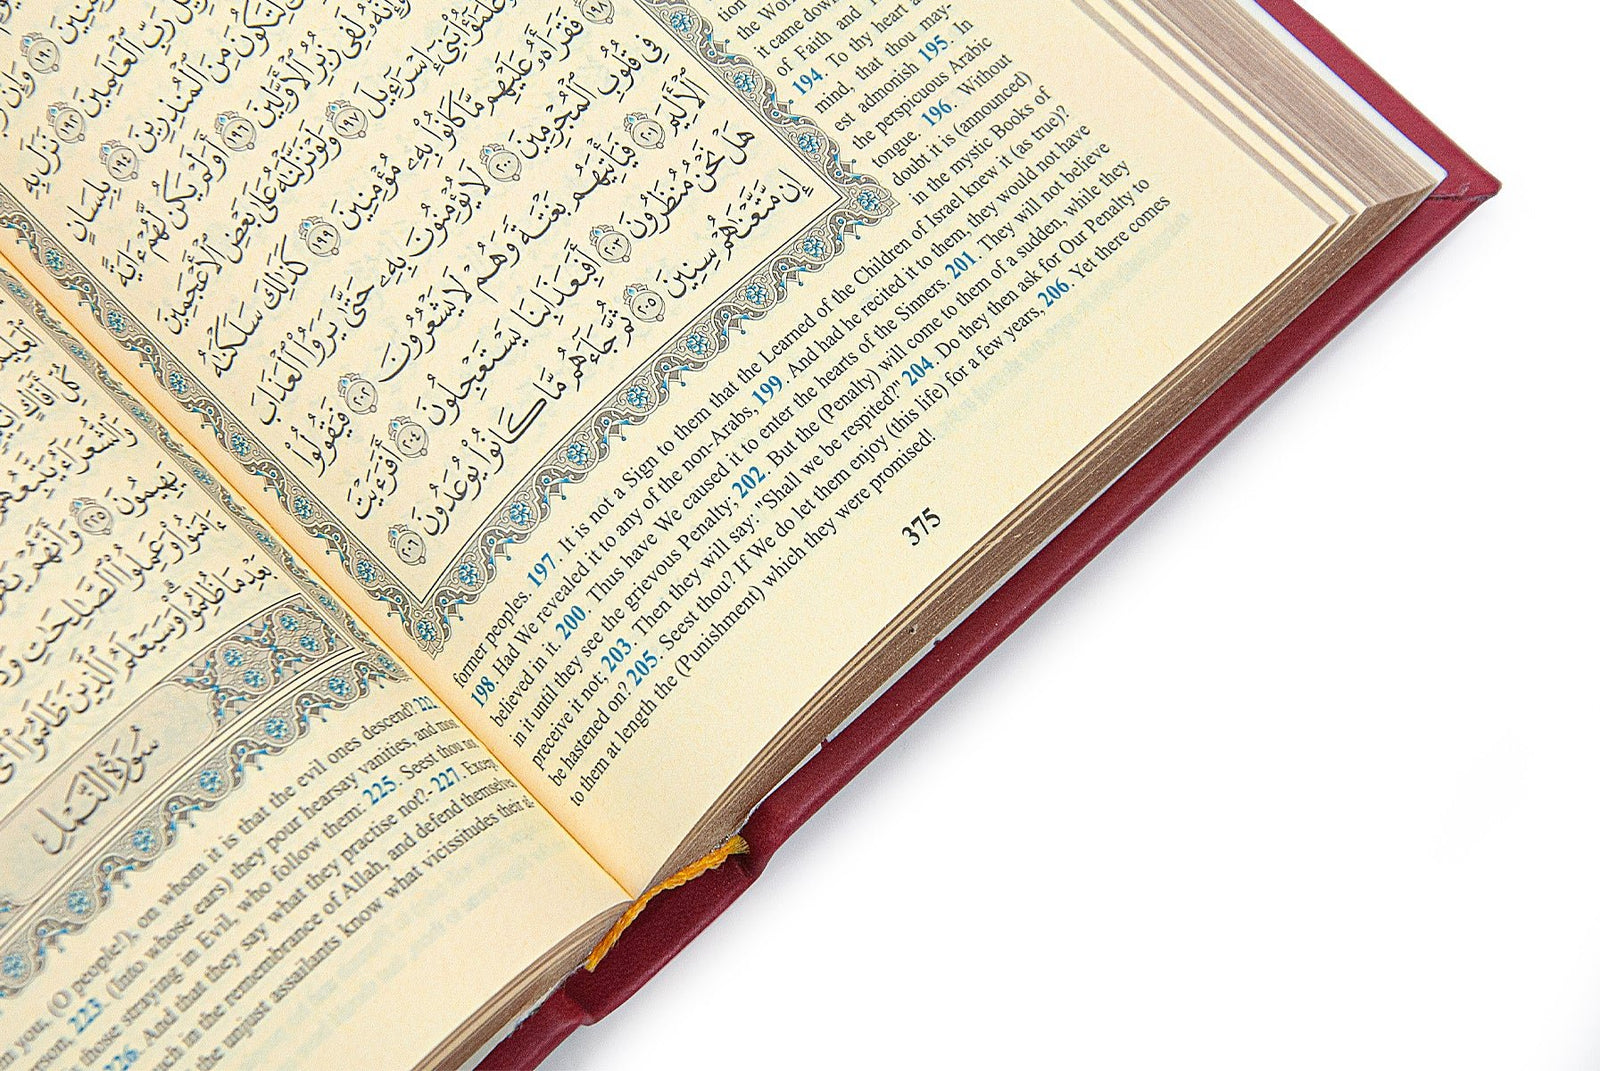 مُّؤْمِنِينَ ١٩٠ وَإِنَّ
رَبِّ ٱلْعَٰلَمِينَ ١٩٢ نَزَلَ بِهِ
لِتَكُونَ مِنَ ٱلْمُنذِرِينَ ١٩٤ بِلِسَانٍ
وَإِنَّهُۥ لَفِى زُبُرِ ٱلْأَوَّلِينَ ١٩٦ أَوَلَمْ يَكُن لَّهُمْ ءَايَةً
عُلَمَٰٓؤُا۟ بَنِىٓ إِسْرَٰٓءِيلَ ١٩٧ وَلَوْ نَزَّلْنَٰهُ عَلَىٰ بَعْضِ ٱلْأَعْجَمِينَ
١٩٨ فَقَرَأَهُۥ عَلَيْهِم مَّا كَانُوا۟ بِهِۦ مُؤْمِنِينَ ١٩٩ كَذَٰلِكَ سَلَكْنَٰهُ
فِى قُلُوبِ ٱلْمُجْرِمِينَ ٢٠٠ لَا يُؤْمِنُونَ بِهِۦ حَتَّىٰ يَرَوُا۟ ٱلْعَذَابَ
ٱلْأَلِيمَ ٢٠١ فَيَأْتِيَهُم بَغْتَةً وَهُمْ لَا يَشْعُرُونَ ٢٠٢ فَيَقُولُوا۟
هَلْ نَحْنُ مُنظَرُونَ ٢٠٣ أَفَبِعَذَابِنَا يَسْتَعْجِلُونَ ٢٠٤ أَفَرَءَيْتَ
إِن مَّتَّعْنَٰهُمْ سِنِينَ ٢٠٥ ثُمَّ جَآءَهُم مَّا كَانُوا۟ يُوعَدُونَ ٢٠٦
tion
the Wor
it came dow
of Faith and
194. To thy heart a
mind, that thou may-
est admonish 195. In
the perspicuous Arabic
tongue. 196. Without
doubt it is (announced)
in the mystic Books of
former peoples. 197. It is not a Sign to them that the Learned of the Children of Israel knew it (as true)?
198. Had We revealed it to any of the non-Arabs, 199. And had he recited it to them, they would not have
believed in it. 200. Thus have We caused it to enter the hearts of the Sinners. 201. They will not believe
in it until they see the grievous Penalty; 202. But the (Penalty) will come to them of a sudden, while they
perceive it not; 203. Then they will say: "Shall we be respited?" 204. Do they then ask for Our Penalty to
be hastened on? 205. Seest thou? If We do let them enjoy (this life) for a few years, 206. Yet there comes
to them at length the (Punishment) which they were promised!
375
وَٱلشُّعَرَآءُ يَتَّبِعُهُمُ
يَهِيمُونَ ٢٢٥ وَأَنَّهُمْ
ءَامَنُوا۟ وَعَمِلُوا۟ ٱلصَّٰلِحَٰتِ
بَعْدِ مَا ظُلِمُوا۟ وَسَيَعْلَمُ ٱلَّذِينَ ظَلَمُوٓا۟
سُورَةُ ٱلنَّمْلِ
you, (O people!), on whom it is that the evil ones descend?
223. (Into whose ears) they pour hearsay vanities, and most
those straying in Evil, who follow them: 225. Seest thou not
226. And that they say what they practise not?- 227. Except
in the remembrance of Allah, and defend themselves
the unjust assailants know what vicissitudes their